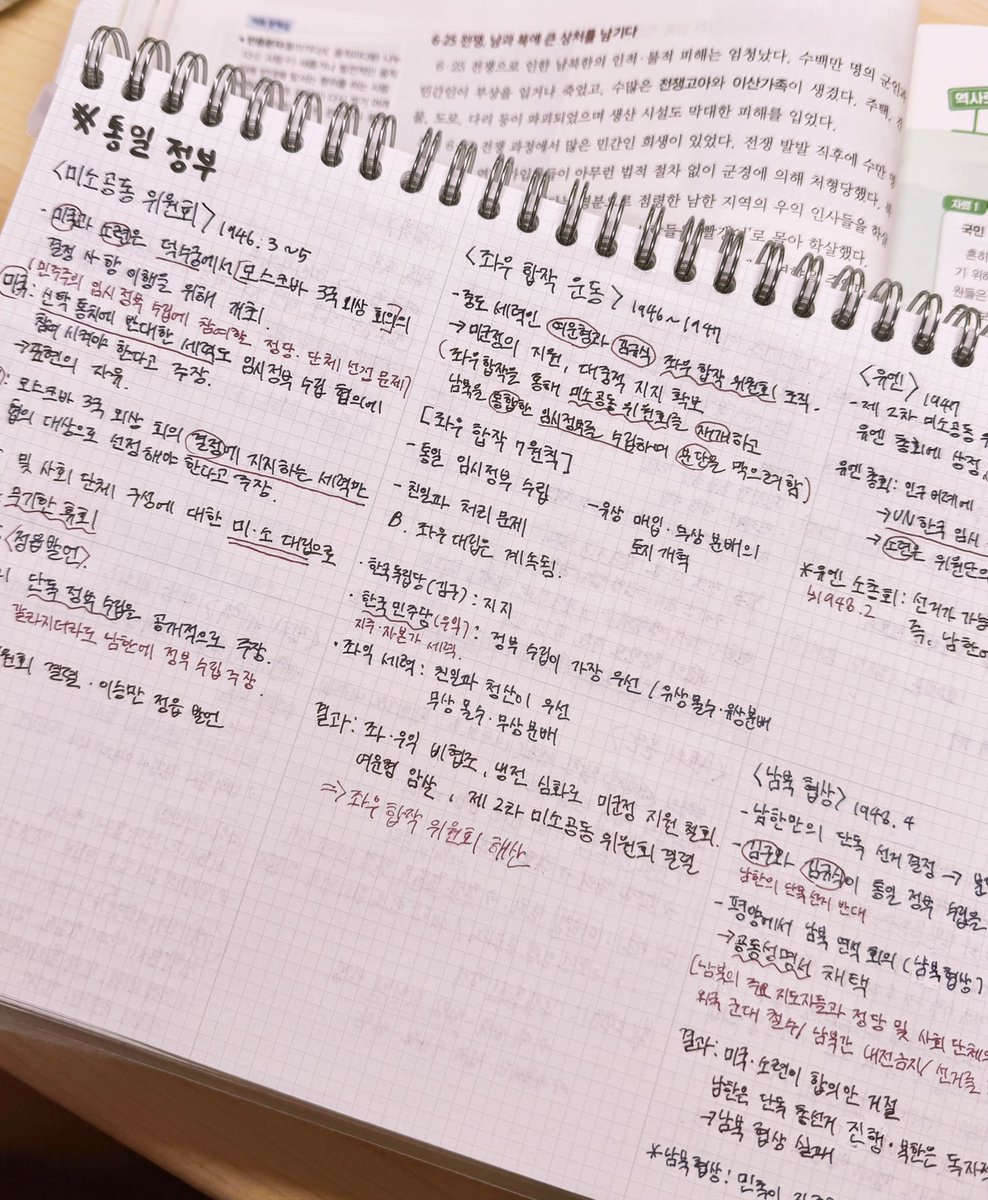 6·25 전쟁, 남과 북에 큰 상처를 남기다
6·25 전쟁으로 인한 남북한의 인적·물적 피해는 엄청났다. 수백만 명의 군인과
민간인이 부상을 입거나 죽었고, 수많은 전쟁고아와 이산가족이 생겼다. 주택,
물, 도로, 다리 등이 파괴되었으며 생산 시설도 막대한 피해를 입었다.
전쟁 과정에서 많은 민간인 희생이 있었다. 전쟁 발발 직후에 수만 명
이 아무런 법적 절차 없이 군경에 의해 처형당했다.
점령한 남한 지역의 우익 인사들을 학살
로 몰아 학살했다.
자료 1
국민
흔히
기 위해
원들은
※통일 정부
<미소공동 위원회> 1946. 3 ~5
- 미국과 소련은 덕수궁에서 모스크바 3국 외상 회의의
결정 사항 이행을 위해 개최.
(민주주의 임시 정부 수립에 참여할 정당·단체 선정 문제)
미국: 신탁 통치에 반대한 세력도 임시정부 수립 협의에
참여 시켜야 한다고 주장.
→표현의 자유.
: 모스크바 3국 외상 회의 결정에 지지하는 세력만
협의 대상으로 선정해야 한다고 주장.
및 사회 단체 구성에 대한 미·소 대립으로
무기한 휴회
<정읍발언>.
단독 정부 수립을 공개적으로 주장.
갈라지더라도 남한에 정부 수립 주장.
원회 결렬·이승만 정읍 발언
<좌우 합작 운동> 1946~1947
- 중도 세력인 여운형과 김규식 좌우 합작 위원회 조직.
→미군정의 지원, 대중적 지지 확보
(좌우합작을 통해 미소공동 위원회를 재개하고
남북을 통합한 임시정부를 수립하여 분단을 막으려 함)
[좌우 합작 7원칙]
- 통일 임시정부 수립
- 친일파 처리 문제
- 유상 매입·무상 분배의
토지 개혁
B. 좌우 대립은 계속됨.
· 한국독립당(김구): 지지
· 한국 민주당(우익): 정부 수립이 가장 우선 / 유상몰수·유상분배
지주·자본가 세력.
· 좌익 세력: 친일파 청산이 우선
무상 몰수·무상분배
결과: 좌·우익 비협조, 냉전 심화로 미군정 지원 철회.
여운형 암살, 제 2차 미소공동 위원회 결렬
⇒좌우 합작 위원회 해산
<유엔> 1947
- 제 2차 미소공동
유엔 총회에 상정
유엔 총회: 인구 비례에
→UN한국 임시
→소련은 위원단의
*유엔 소총회: 선거가 가능
↳1948.2
즉, 남한에
<남북 협상> 1948.4
- 남한만의 단독 선거 결정 →
- 김구와 김규식이 통일 정부 수립을
남한의 단독선거 반대
- 평양에서 남북 연석 회의 (남북협상)
→공동성명서 채택
(남북의 주요 지도자들과 정당 및 사회 단체의
외국 군대 철수/ 남북간 내전금지/ 선거를
결과: 미국·소련이 합의안 거절
남한은 단독 총선거 진행·북한은 독자적
→남북 협상 실패
*남북협상: 민족이